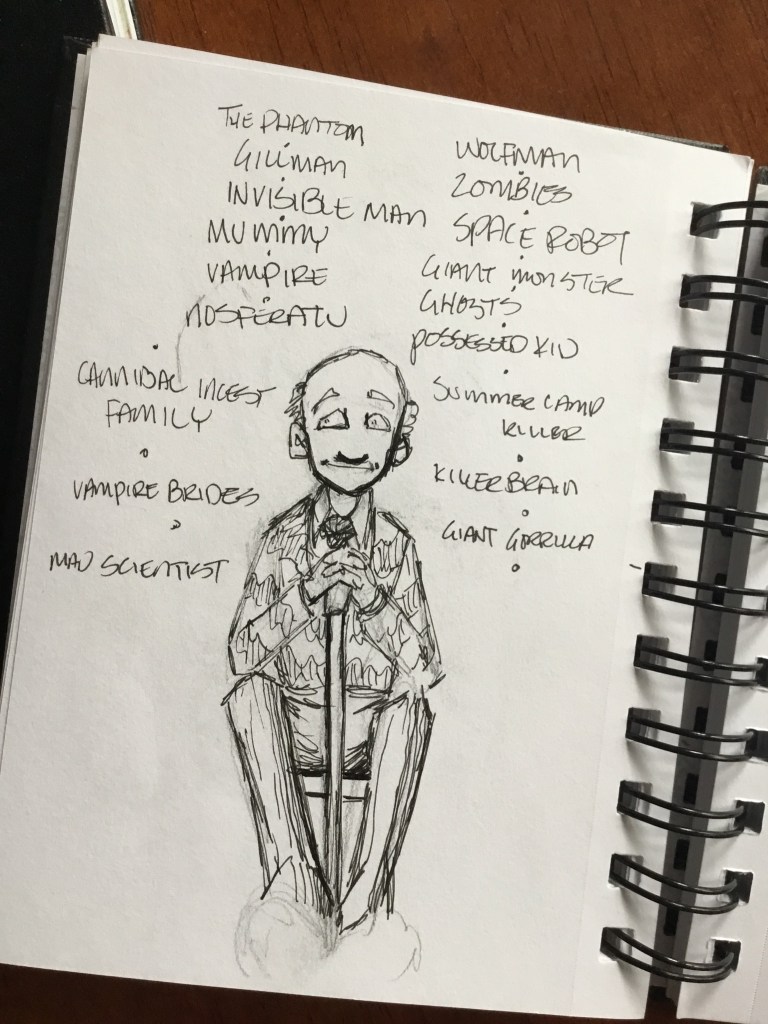 THE PHANTOM
GILLMAN
INVISIBLE MAN
MUMMY
VAMPIRE
NOSFERATU
CANNIBAL INCEST
FAMILY
VAMPIRE BRIDES
MAD SCIENTIST
WOLFMAN
ZOMBIES
SPACE ROBOT
GIANT MONSTER
GHOSTS
POSSESSED KID
SUMMER CAMP
KILLER
KILLER BRAIN
GIANT GORRILLA